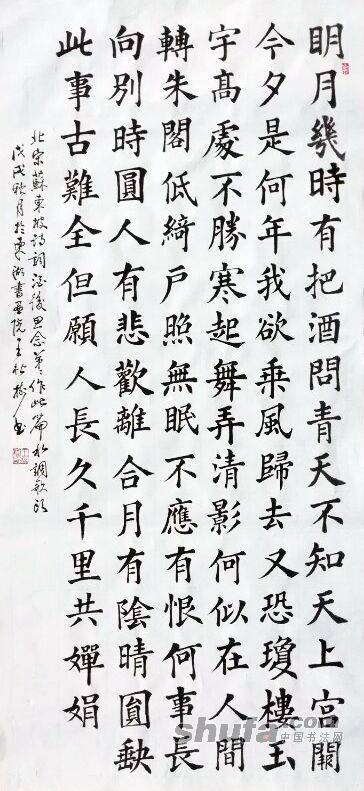 眀月幾時有把酒問青天不知天上宮闕
今夕是何年我欲乘風歸去又恐瓊樓玉
宇髙處不勝寒起舞弄清影何似在人間
轉朱閣低綺戶照無眠不應有恨何事長
向別時圓人有悲歡離合月有陰晴圓缺
此事古難全但願人長久千里共嬋娟
北宋蘇東坡詩詞酒後思念弟弟作此篇水調歌頭
戊戌秋月於東湖書画院王書
shufa.com
中国书法网